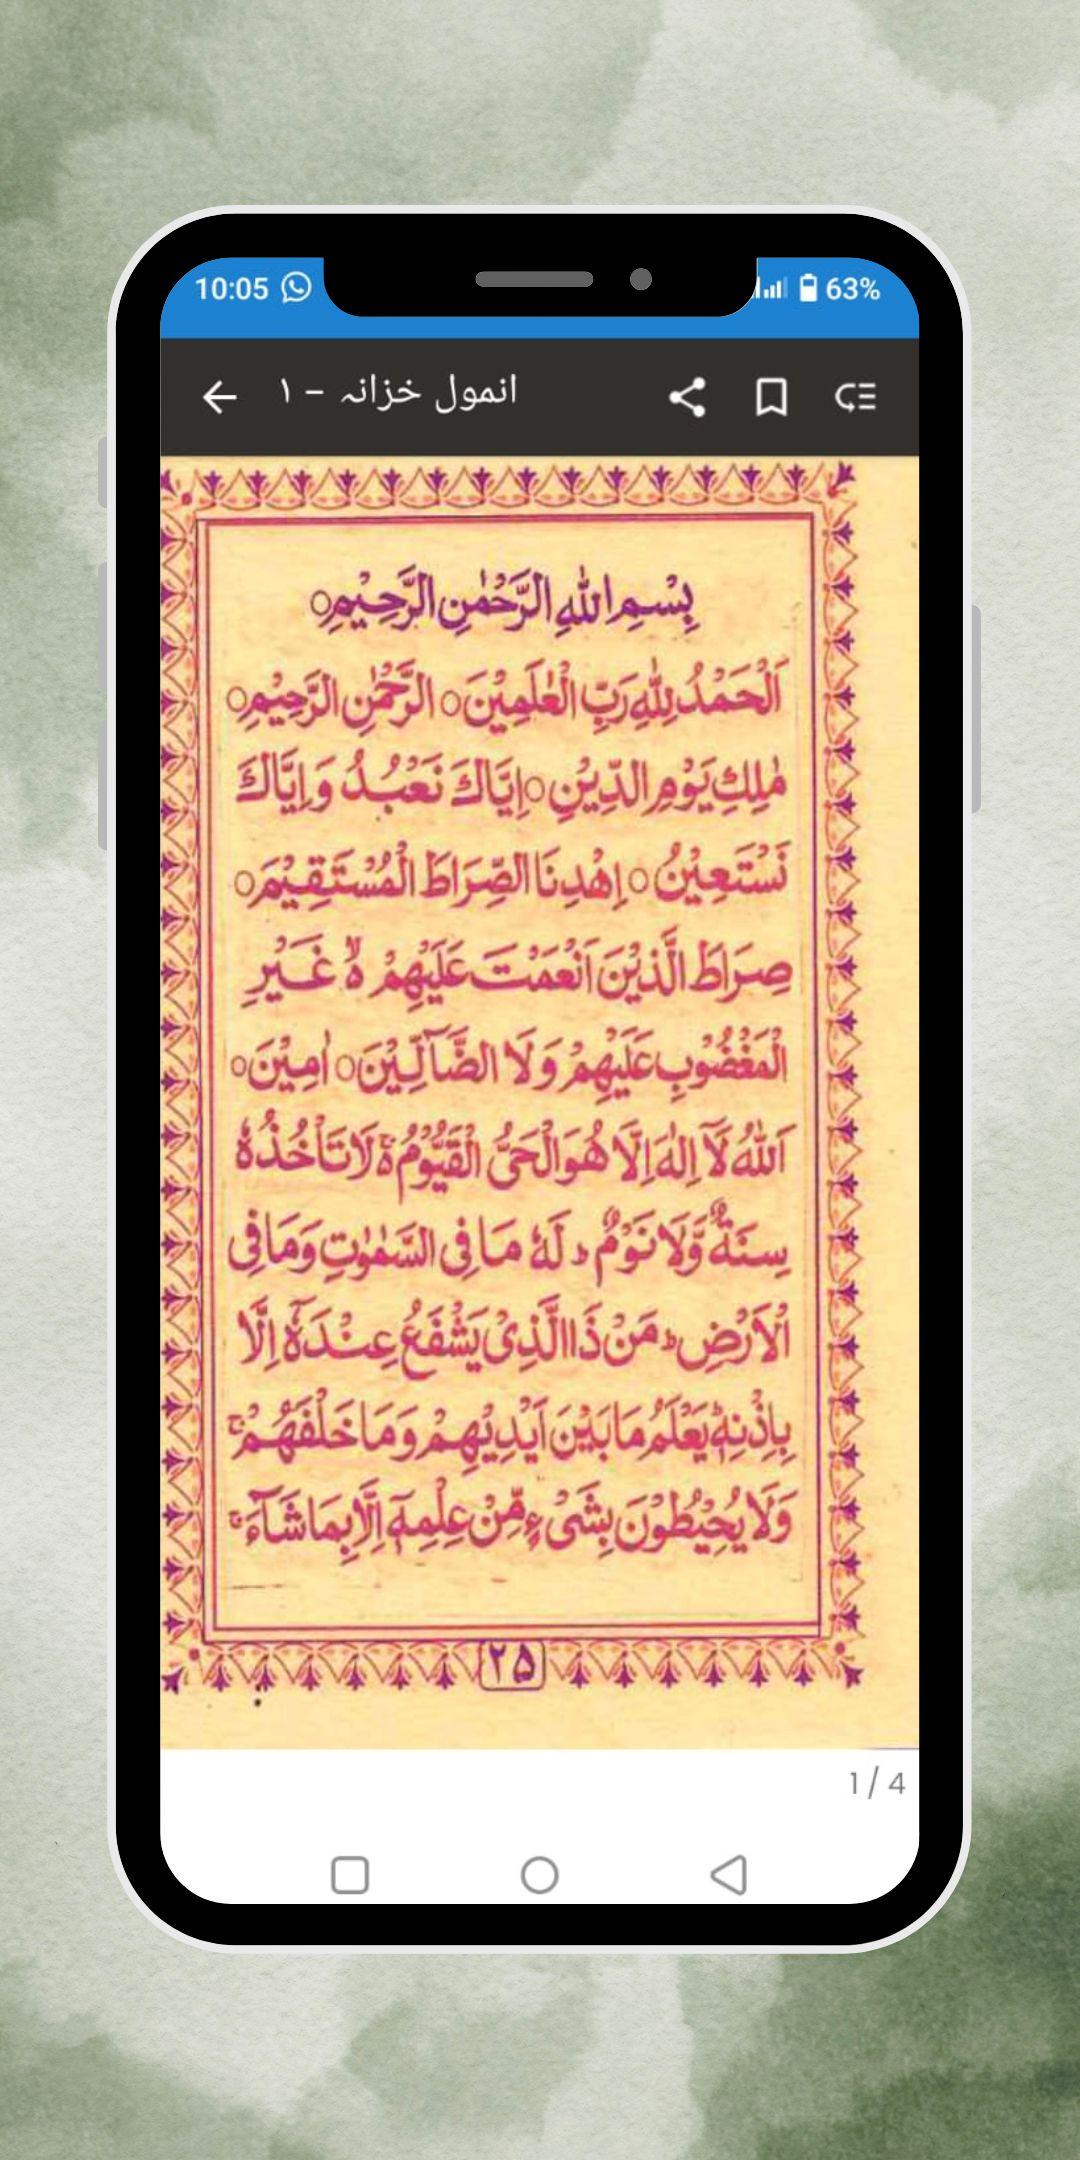 10:05
63%
انمول خزانہ – ۱
بِسْمِ اللهِ الرَّحْمٰنِ الرَّحِيْمِ○
اَلْحَمْدُ لِلّٰهِ رَبِّ الْعٰلَمِيْنَ○ الرَّحْمٰنِ الرَّحِيْمِ○
مٰلِكِ يَوْمِ الدِّيْنِ○ اِيَّاكَ نَعْبُدُ وَ اِيَّاكَ
نَسْتَعِيْنُ○ اِهْدِنَا الصِّرَاطَ الْمُسْتَقِيْمَ○
صِرَاطَ الَّذِيْنَ اَنْعَمْتَ عَلَيْهِمْ ۙ غَيْرِ
الْمَغْضُوْبِ عَلَيْهِمْ وَلَا الضَّآلِّيْنَ○ اٰمِيْنَ○
اَللّٰهُ لَآ اِلٰهَ اِلَّا هُوَ الْحَيُّ الْقَيُّوْمُ ۚ لَا تَاْخُذُهٗ
سِنَةٌ وَّلَا نَوْمٌ ؕ لَهٗ مَا فِي السَّمٰوٰتِ وَمَا فِي
الْاَرْضِ ؕ مَنْ ذَا الَّذِيْ يَشْفَعُ عِنْدَهٗٓ اِلَّا
بِاِذْنِهٖ ؕ يَعْلَمُ مَا بَيْنَ اَيْدِيْهِمْ وَمَا خَلْفَهُمْ ۚ
وَلَا يُحِيْطُوْنَ بِشَيْءٍ مِّنْ عِلْمِهٖٓ اِلَّا بِمَا شَآءَ ۚ
۲۵
1 / 4